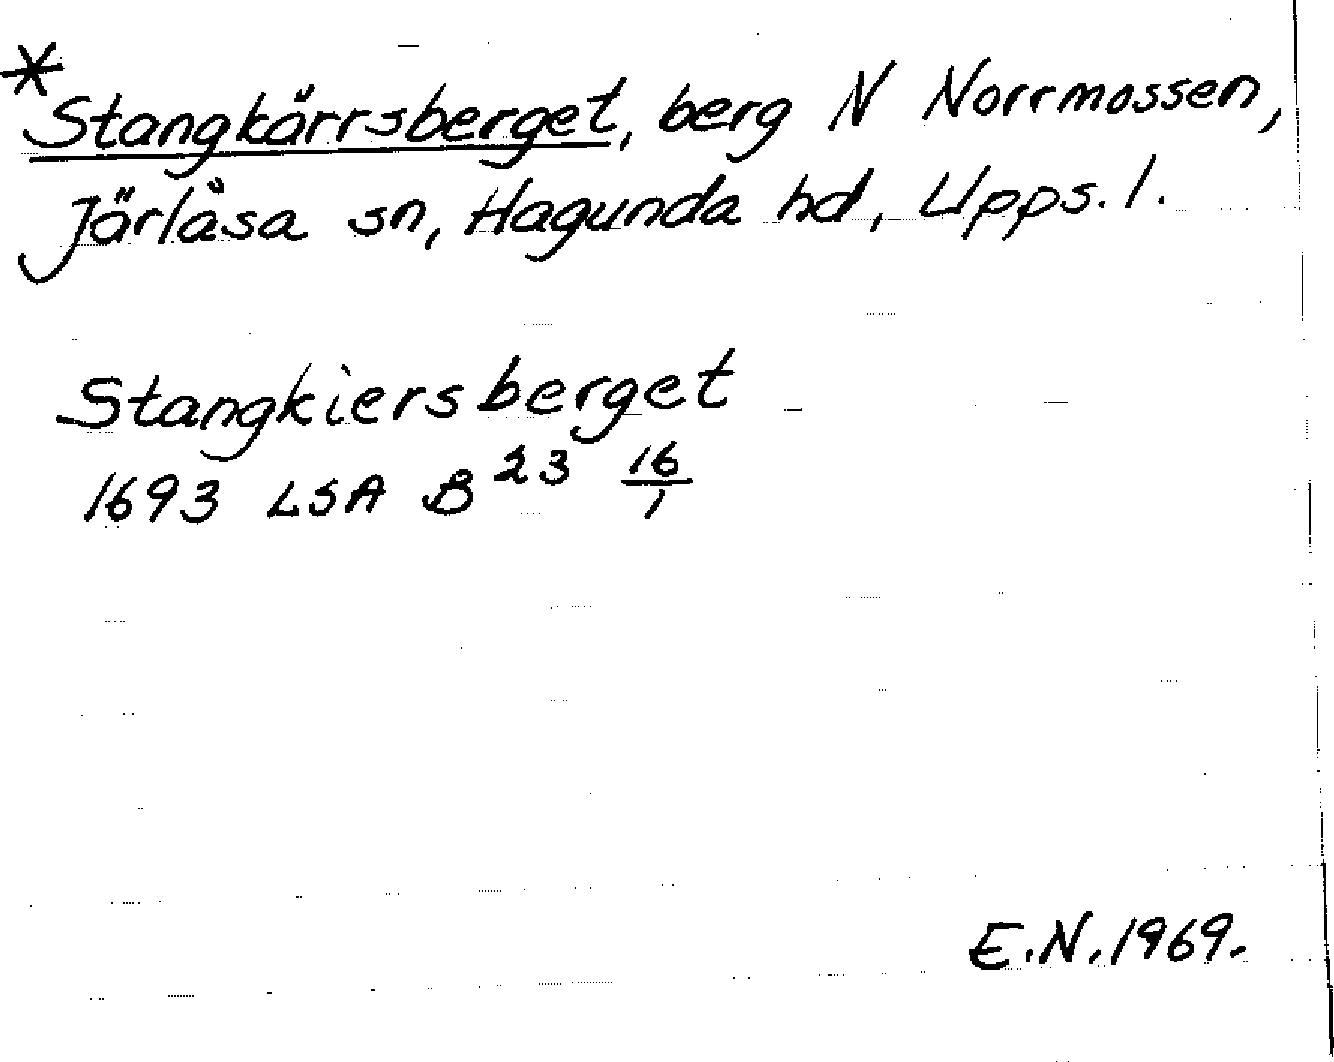 *Stangkärrsberget, berg N Norrmossen,
Järlåsa sn, Hagunda hd, Upps. l.
Stangkiersberget
1693 LSA B 23 16/1
E.N. 1969.